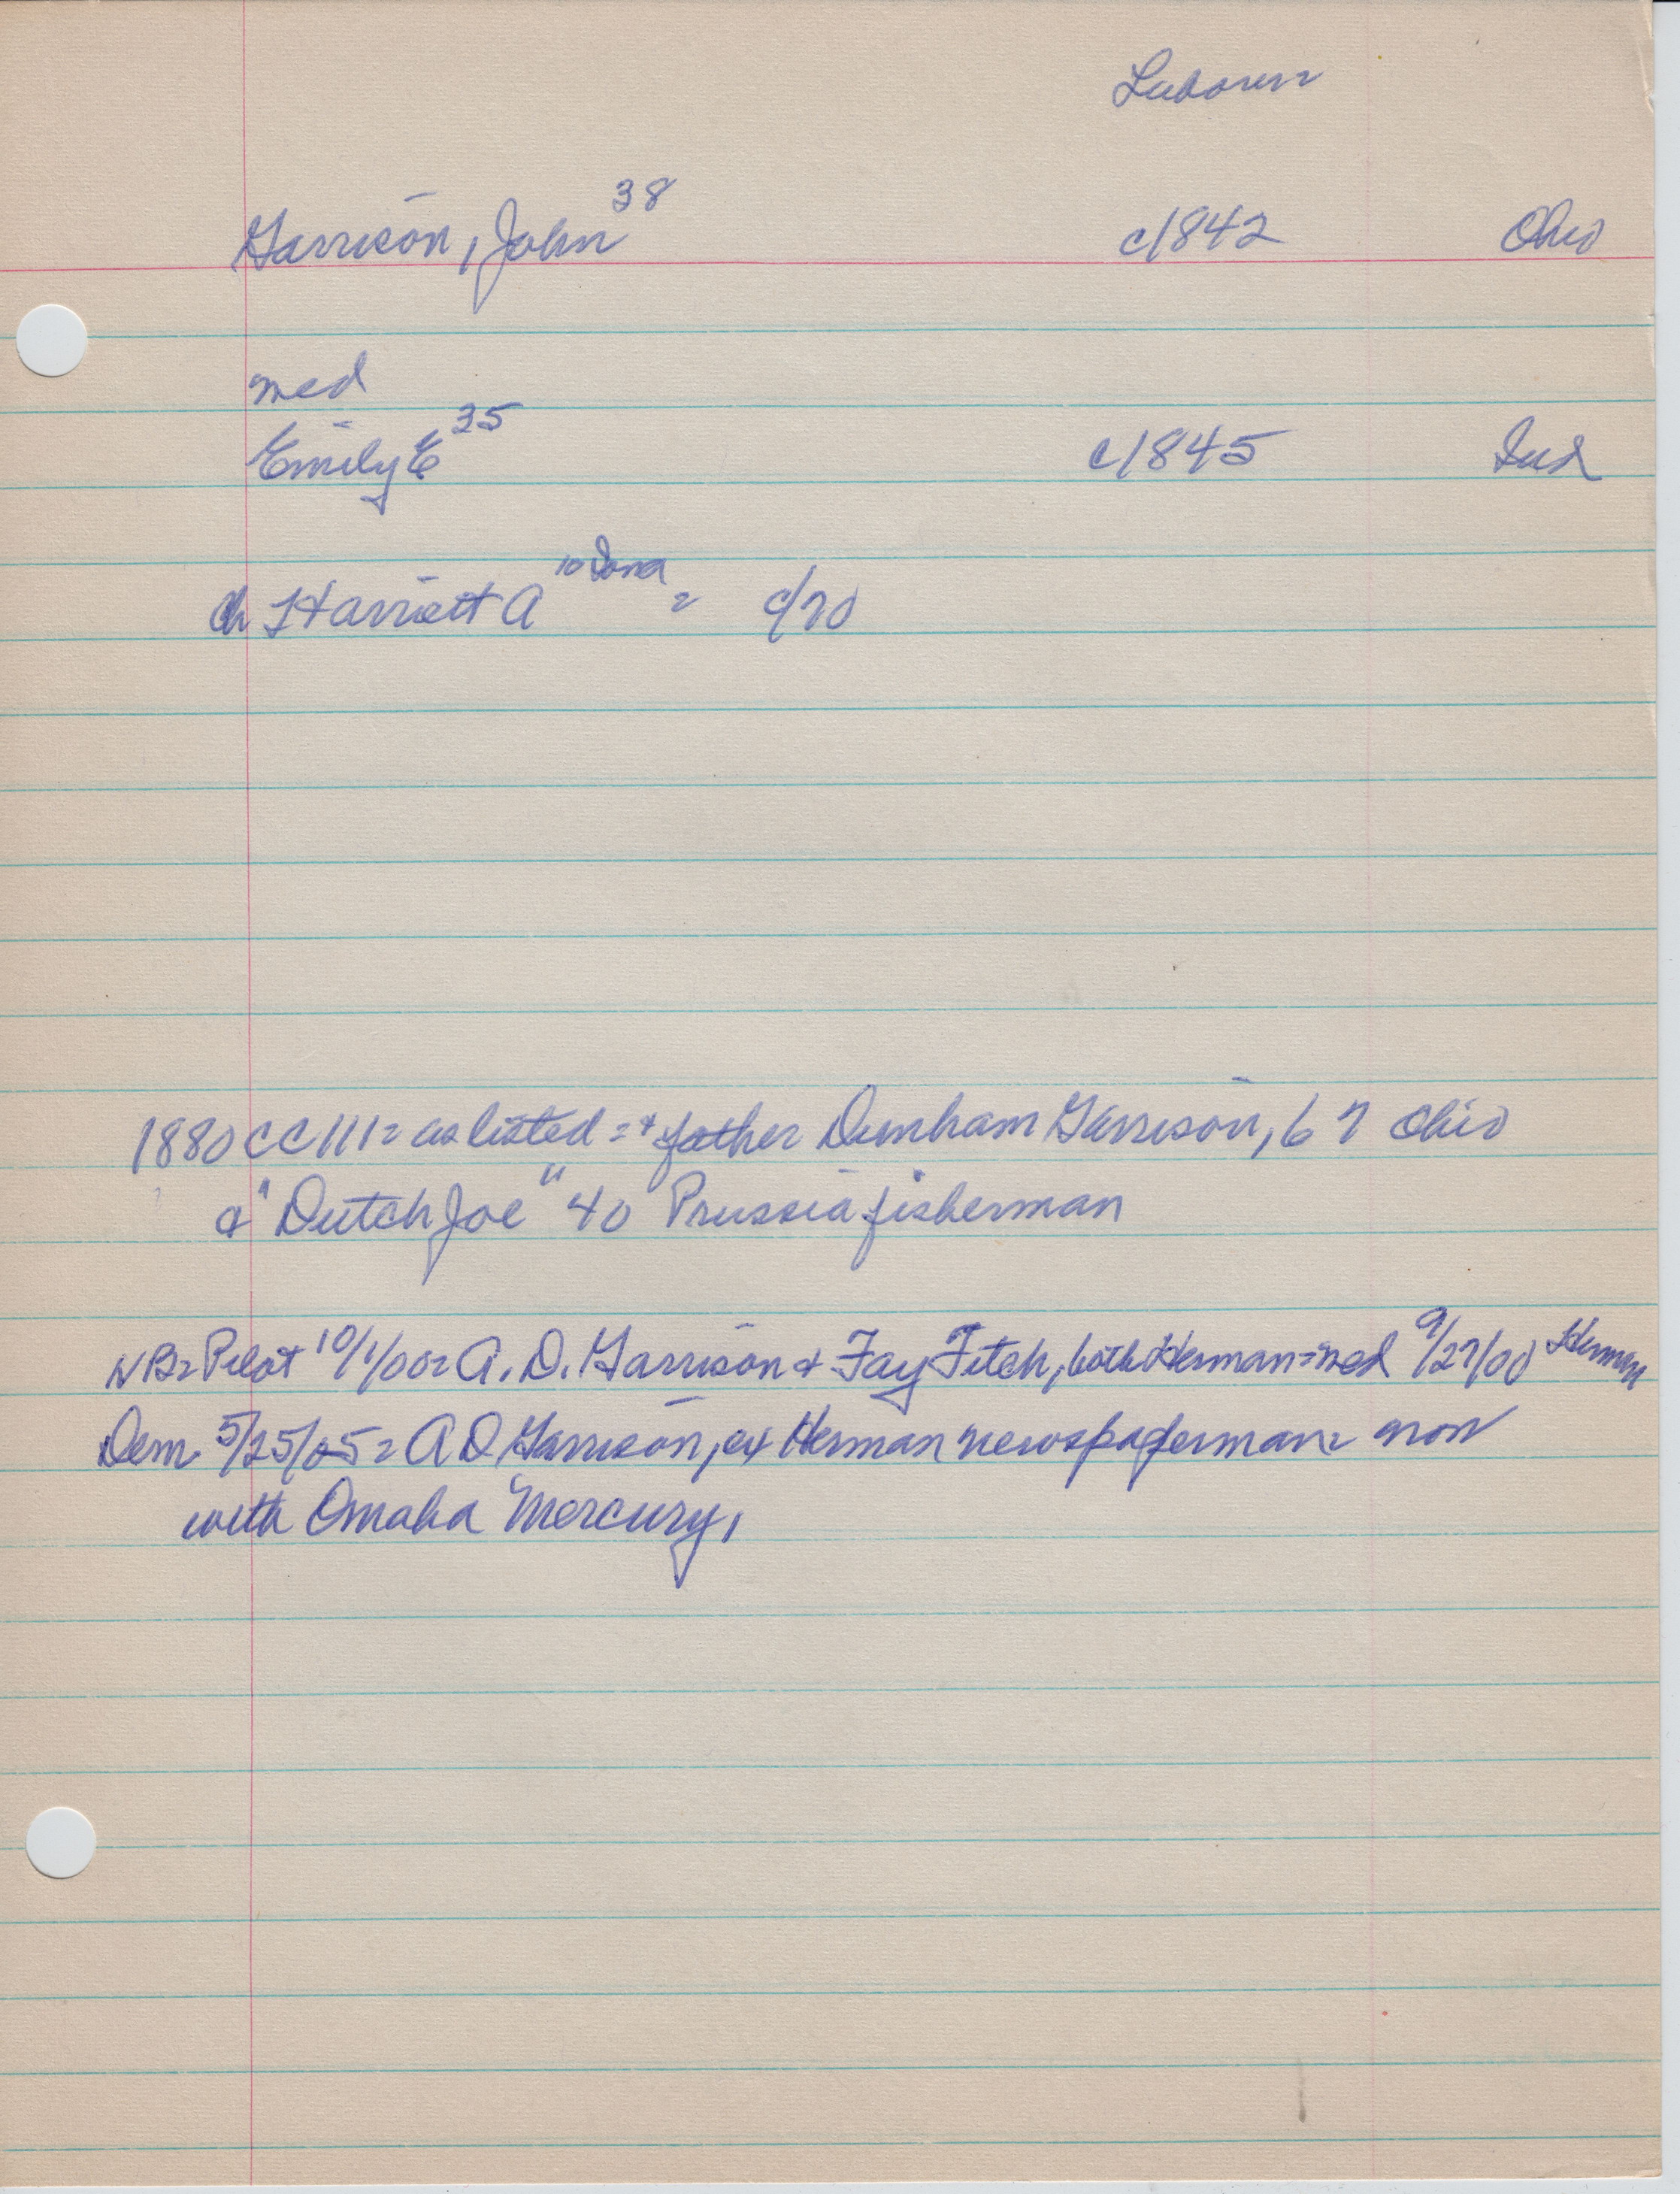 Laborer=
Garrison, John 38 c/1842 Ohio
med
Emily E 35 c/1845 Ind
ch Harriett A 10 Iowa = c/70
1880 CC 111= as listed = + father Dunham Garrison, 67 Ohio
& "Dutch Joe" 40 Prussia fisherman
NB= Pilot 10/1/00= A. D. Garrison & Fay Fitch, both Herman= med 9/27/00 Herman
Dem 5/25/05= A D Garrison, ex Herman newspaperman= now
with Omaha Mercury,